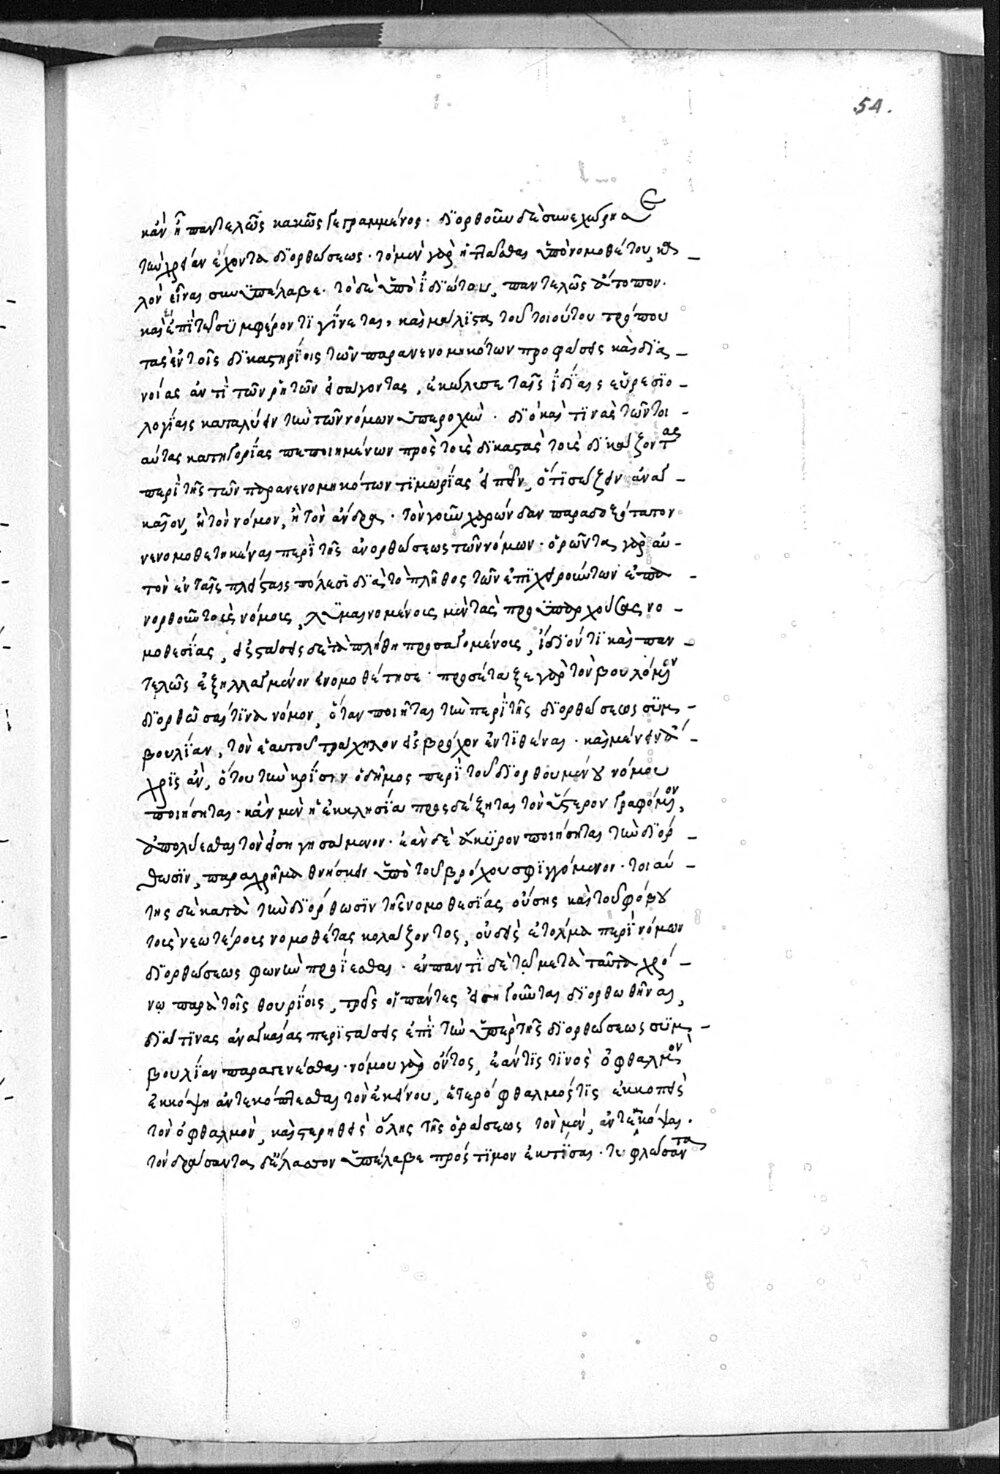 54.
κἂν ᾖ παντελῶς κακῶς γεγραμμένος· διορθοῦν δὲ συνεχώρησε
τὴν χρείαν ἔχοντα διορθώσεως· τὸ μὲν γὰρ ὑπὸ νομοθέτου, κα-
λὸν εἶναι συνυπέλαβε· τὸ δὲ ὑπὸ ἰδιώτου, παντελῶς ἄτοπον·
καὶ εἰ ἐπὶ τῶ συμφέροντι γίνεται, καὶ μάλιστα τοῦ τοιούτου τρόπου
τὰς ἐν τοῖς δικαστηρίοις τῶν παρανενομηκότων προφάσεις καὶ δια-
νοίας ἀντὶ τῶν ῥητῶν εἰσάγοντας, ἐκώλυσε ταῖς ἰδίαις εὑρεσιο-
λογίαις καταλύειν τὴν τῶν νόμων ὑπεροχήν· διὸ καί τινας τῶν τοι-
αύτας κατηγορίας πεποιημένων πρὸς τοὺς δικαστὰς τοὺς δικάζοντας
περὶ τῆς τῶν παρανενομηκότων τιμωρίας εἰπεῖν, ὅτι σώζειν ἀναγ-
καῖον, ἢ τὸν νόμον, ἢ τὸν ἄνδρα· τὸν γοῦν χαρώνδαν παραδοξότατον
νενομοθετηκέναι περὶ τῆς ἀνορθώσεως τῶν νόμων· ὁρῶντα γὰρ αὐ-
τὸν ἐν ταῖς πλείσταις πόλεσι διὰ τὸ πλῆθος τῶν ἐπιχειρούντων ἐπα-
νορθοῦν τοὺς νόμους, λυμαινομένους μὲν τὰς προϋπαρχούσας νο-
μοθεσίας, εἰς στάσεις δὲ τὰ πλήθη προσαγομένους, ἴδιόν τι καὶ παν-
τελῶς ἐξηλλαγμένον ἐνομοθέτησε· προσέταξε γὰρ τὸν βουλόμενον
διορθῶσαί τινα νόμον, ὅταν ποιῆται τὴν περὶ τῆς διορθώσεως συμ-
βουλίαν, τὸν ἑαυτοῦ τράχηλον εἰς βρόχον ἐντιθέναι· καὶ μένειν ἄ-
χρις ἂν, ὅτου τὴν κρίσιν ὁ δῆμος περὶ τοῦ διορθουμένου νόμου
ποιήσηται· κἂν μὲν ἡ ἐκκλησία προσδέξηται τὸν ὕστερον γραφόμενον,
ἀπολύεσθαι τὸν εἰσηγησάμενον· ἐὰν δὲ ἄκυρον ποιήσηται τὴν διόρ-
θωσιν, παραχρῆμα θνήσκειν ὑπὸ τοῦ βρόχου σφιγγόμενον· τοιαύ-
της δὲ κατὰ τὴν διόρθωσιν τῆς νομοθεσίας οὔσης καὶ τοῦ φόβου
τοὺς νεωτέρους νομοθέτας κολάζοντος, οὐδεὶς ἐτόλμα περὶ νόμων
διορθώσεως φωνὴν προΐεσθαι· ἐν παντὶ δὲ τῶ μετὰ ταῦτα χρό-
νῳ παρὰ τοῖς θουρίοις, τρεῖς οἱ πάντες εἰσηγοῦνται διορθωθῆναι,
διά τινας ἀναγκαίας περιστάσεις ἐπὶ τὴν ὑπὲρ τῆς διορθώσεως συμ-
βουλίαν παραγενέσθαι· νόμου γὰρ ὄντος, ἐάν τις τινὸς ὀφθαλμὸν
ἐκκόψη ἀντεκκόπτεσθαι τὸν ἐκείνου, ἑτερόφθαλμός τις ἐκκοπεὶς
τὸν ὀφθαλμὸν, καὶ στερηθεὶς ὅλης τῆς ὁράσεως τὸν μὲν, ἀντεκκόψαι·
τὸν δράσαντα δ' ἔλαττον ὑπέλαβε πρόστιμον ἐκτίσαι· τυφλώσαντα